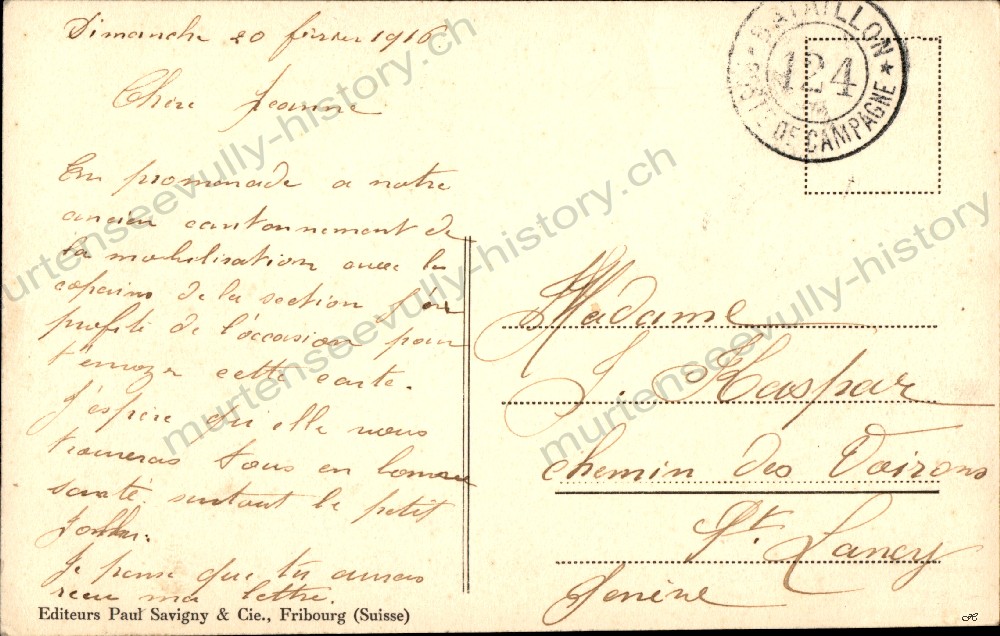 Dimanche 20 février 1916
Chère Jeanne
En promenade a notre
ancien cantonnement de
la mobilisation avec les
copains de la section j'ai
profité de l'occasion pour
t'envoyer cette carte.
J'espère qu'elle vous
trouveras tous en bonne
santé surtout le petit
Je pense que tu auras
reçu ma lettre.
Editeurs Paul Savigny & Cie., Fribourg (Suisse)
BATAILLON
124
POSTE DE CAMPAGNE
Madame
J. Kaspar
chemin des Voirons
Pt. Lancy
Genève
murtenseevully-history.ch
murtenseevully-history.ch
murtenseevully-history.ch
murtenseevully-history